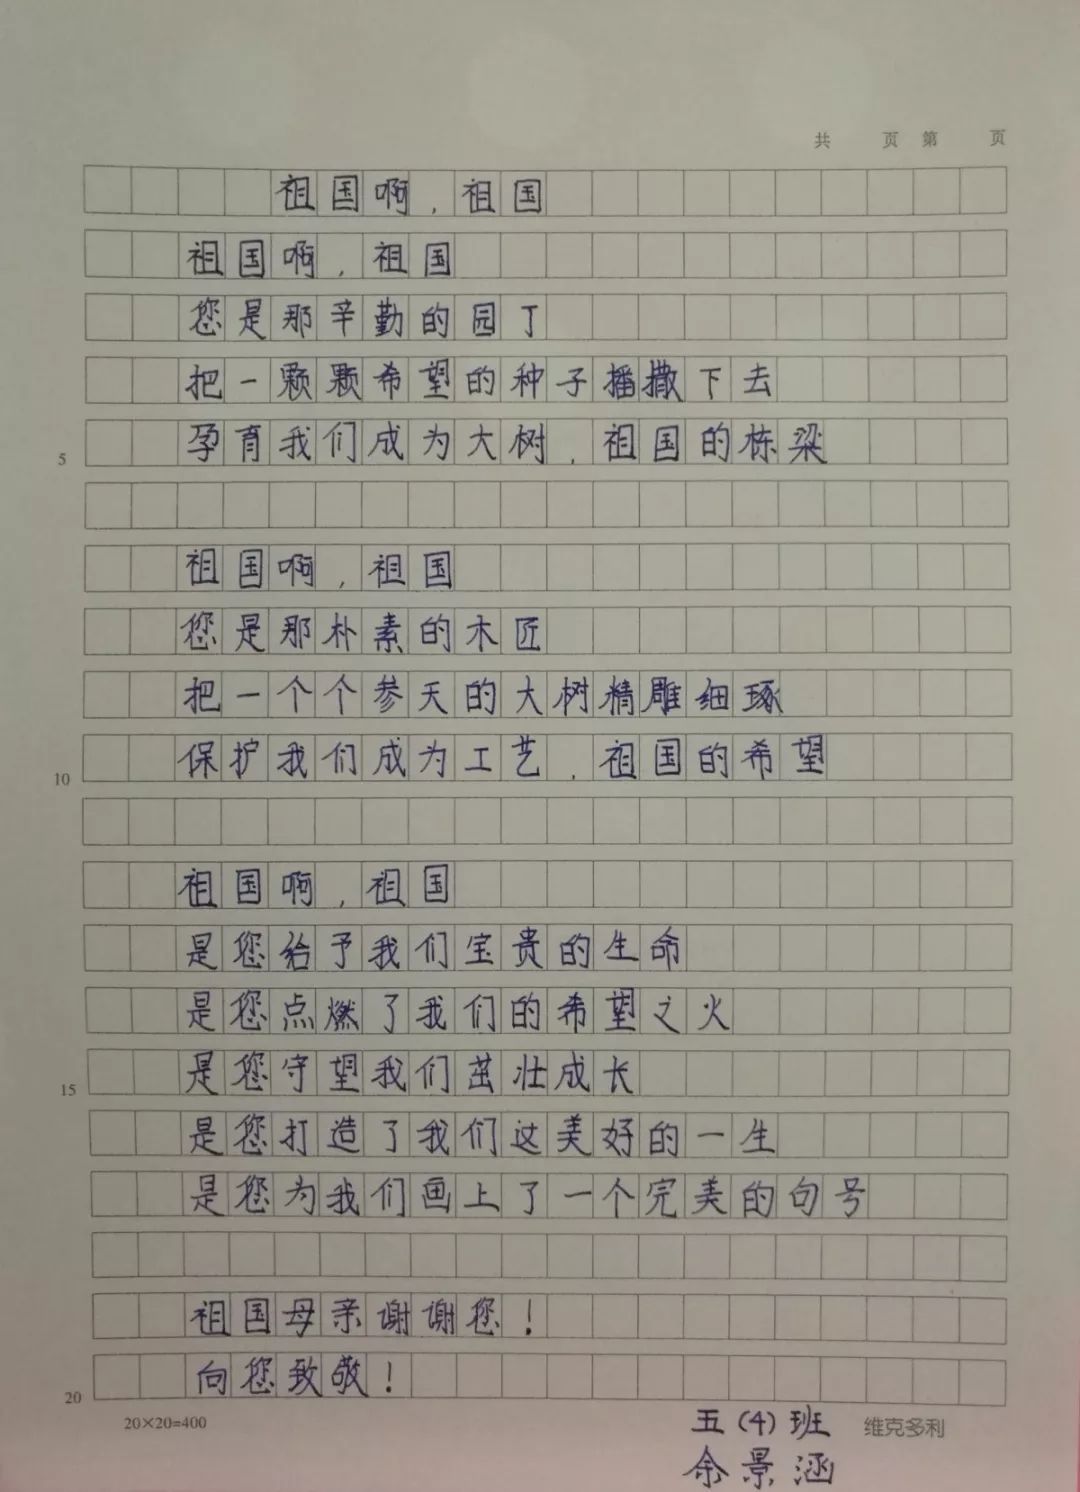 共 页 第 页
祖国啊，祖国
祖国啊，祖国
您是那辛勤的园丁
把一颗颗希望的种子播撒下去
5 孕育我们成为大树，祖国的栋梁
祖国啊，祖国
您是那朴素的木匠
把一个个参天的大树精雕细琢
10 保护我们成为工艺，祖国的希望
祖国啊，祖国
是您给予我们宝贵的生命
是您点燃了我们的希望之火
15 是您守望我们茁壮成长
是您打造了我们这美好的一生
是您为我们画上了一个完美的句号
祖国母亲谢谢您！
20 向您致敬！
20×20=400 五(4)班 维克多利
余景涵